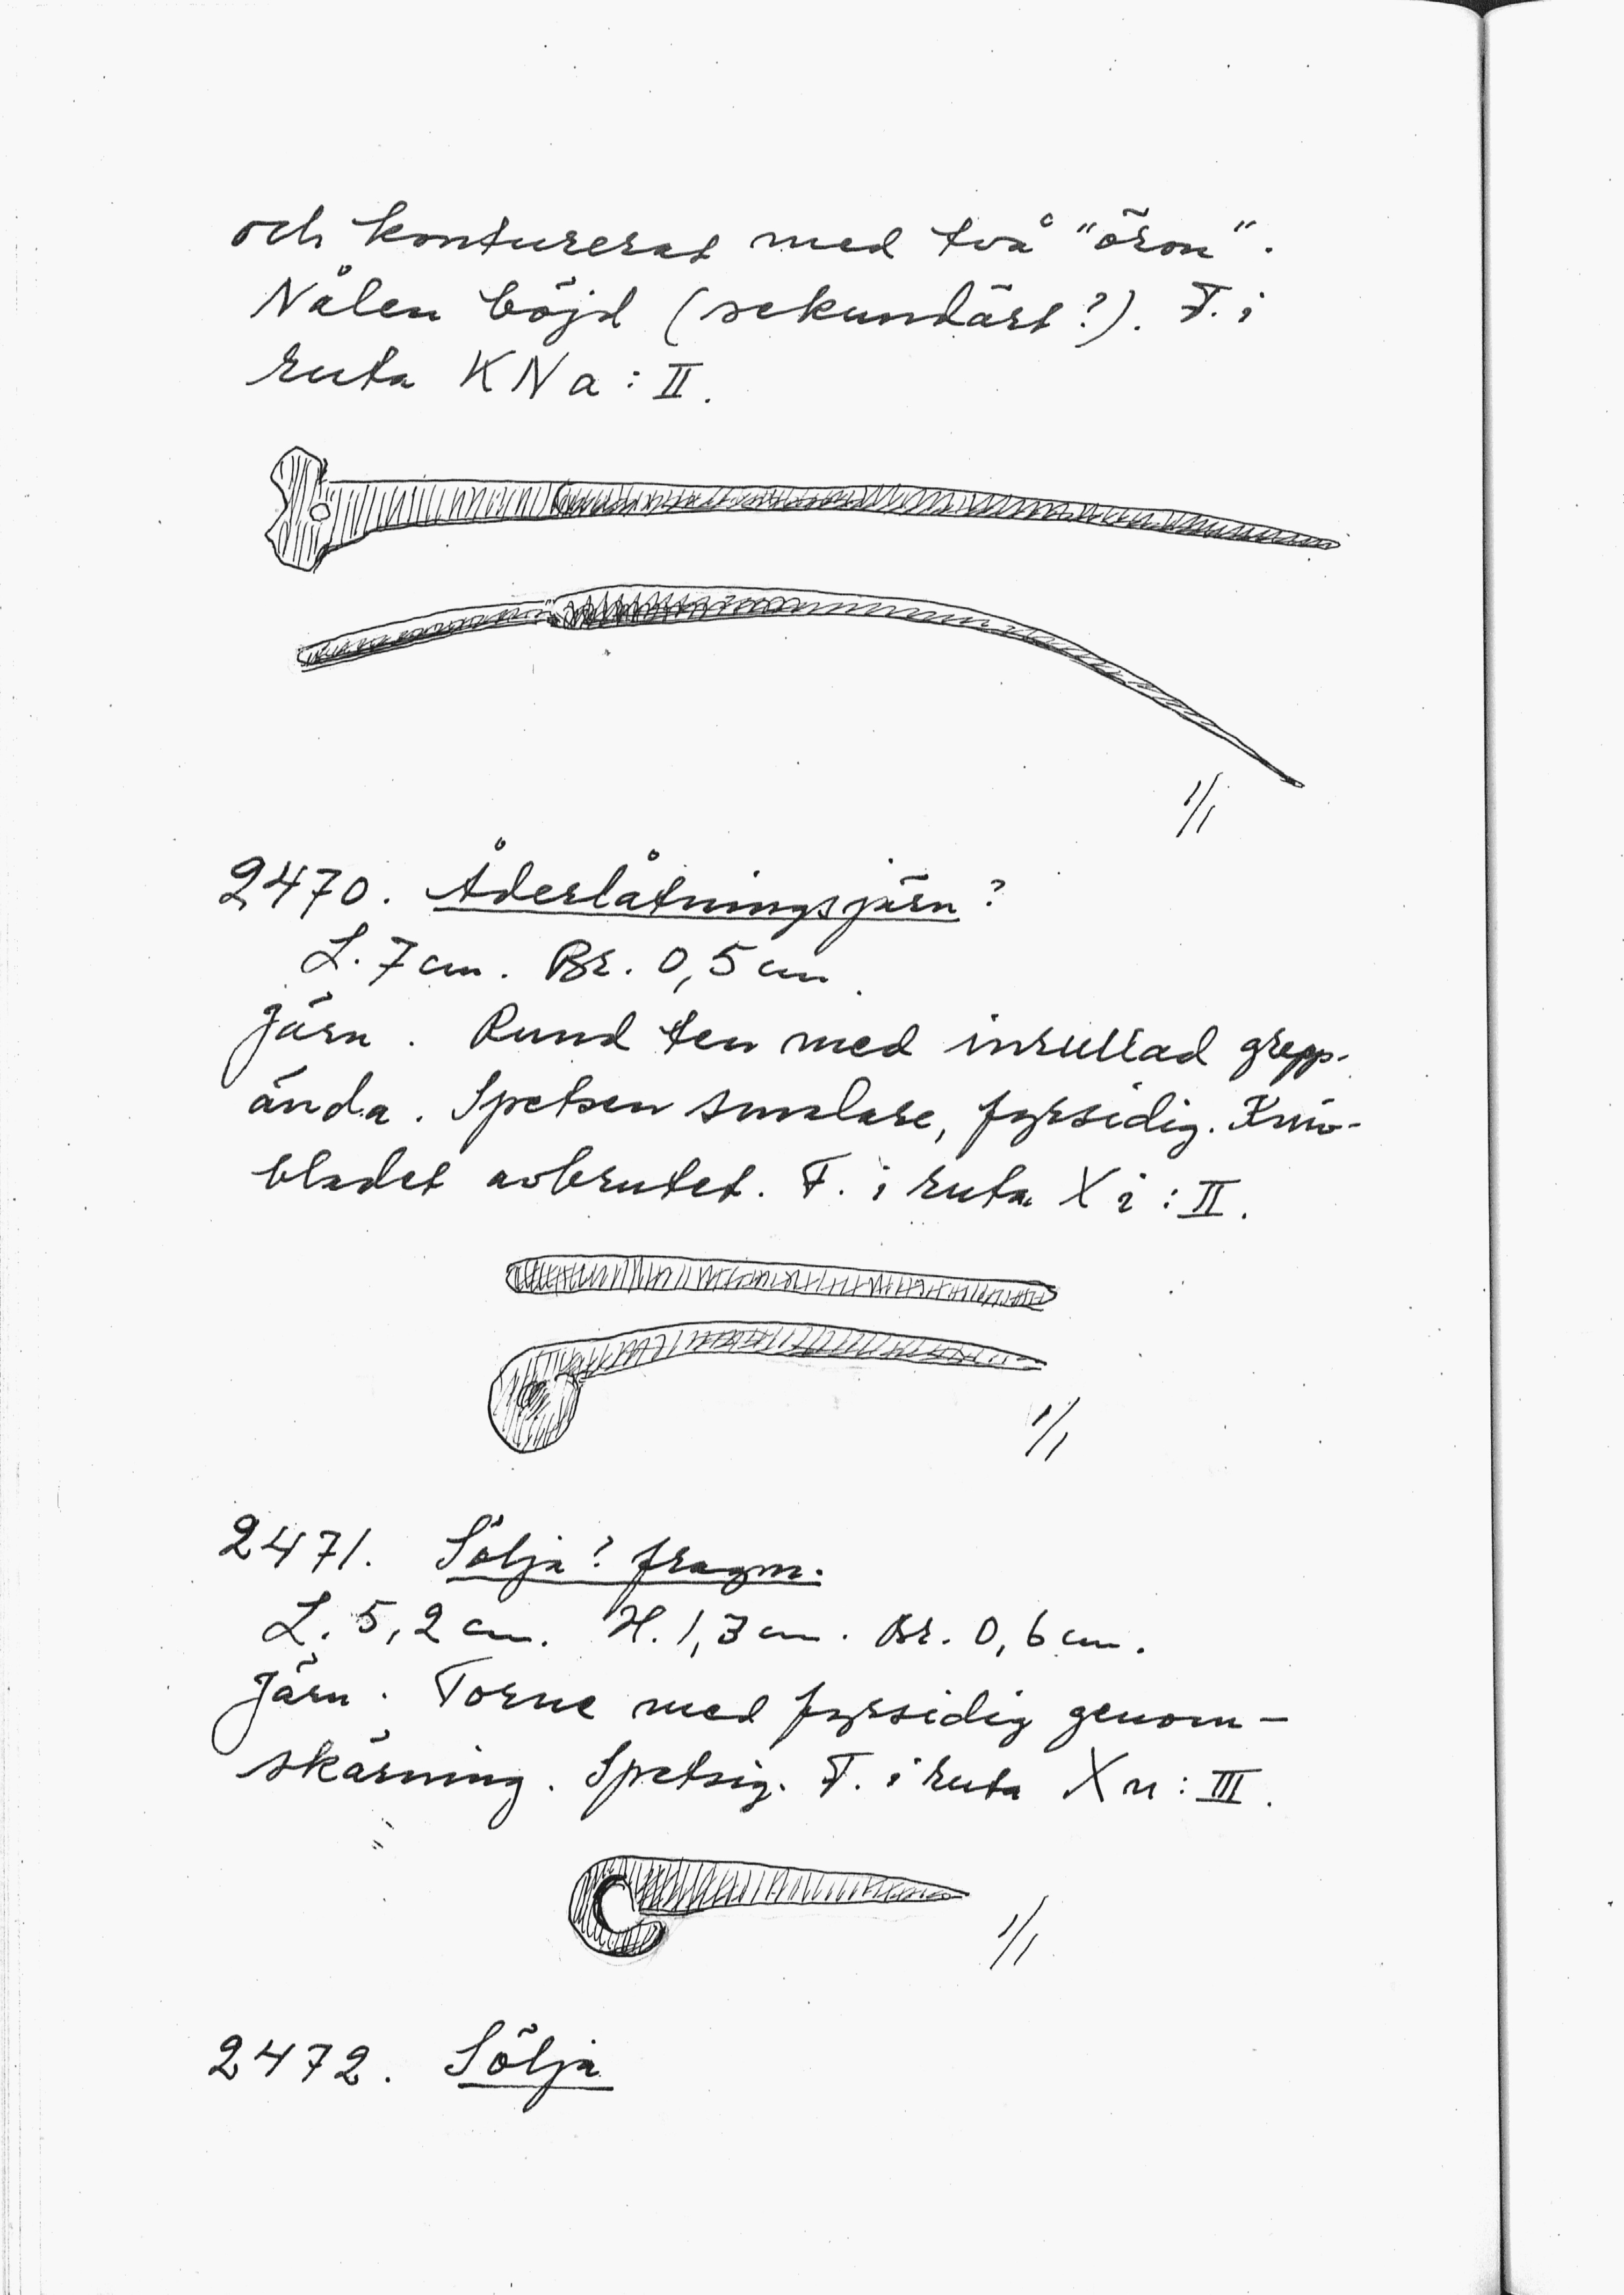 och konturerat med två "öron".
Nålen böjd (sekundärt?). F. i
ruta KNa: II.
1/1
2470. Åderlåtningsjärn?
L. 7 cm. Br. 0,5 cm.
Järn. Rund ten med inrullad grepp-
ända. Spetsen smalare, fyrsidig. Kniv-
bladet avbrutet. F. i ruta Xi: II.
1/1
2471. Sölja? fragm.
L. 5,2 cm. H. 1,3 cm. Br. 0,6 cm.
Järn. Torne med fyrsidig genom-
skärning. Spetsig. F. i ruta Xn: III.
1/1
2472. Sölja